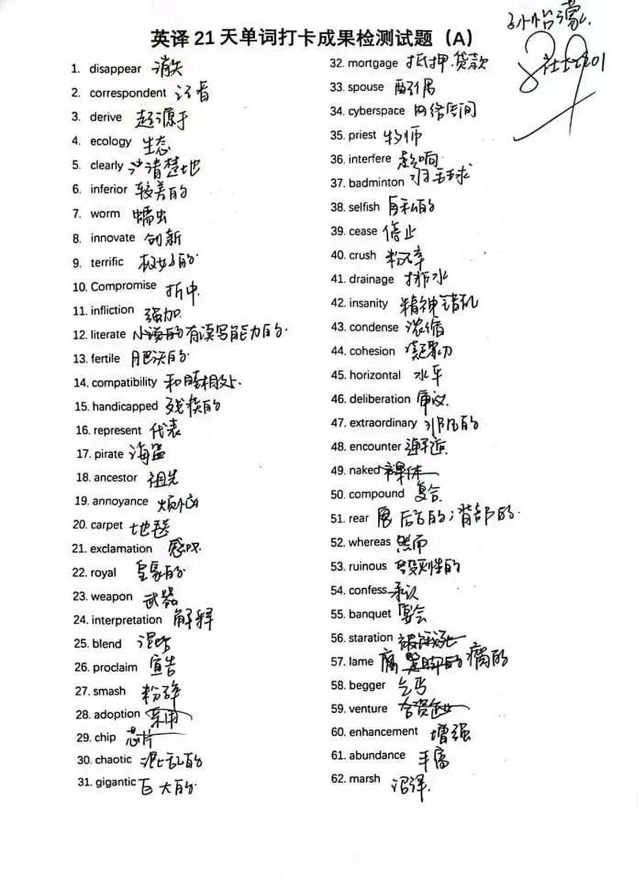 英译21天单词打卡成果检测试题（A）
1. disappear 消失
2. correspondent 记者
3. derive 起源于
4. ecology 生态
5. clearly 清楚地
6. inferior 较差的
7. worm 蠕虫
8. innovate 创新
9. terrific 极好的
10. Compromise 折中
11. infliction 强加
12. literate 有读写能力的
13. fertile 肥沃的
14. compatibility 和睦相处
15. handicapped 残疾的
16. represent 代表
17. pirate 海盗
18. ancestor 祖先
19. annoyance 烦恼
20. carpet 地毯
21. exclamation 感叹
22. royal 皇家的
23. weapon 武器
24. interpretation 解释
25. blend 混合
26. proclaim 宣告
27. smash 粉碎
28. adoption 采用
29. chip 芯片
30. chaotic 混乱的
31. gigantic 巨大的
32. mortgage 抵押.贷款
33. spouse 配偶
34. cyberspace 网络空间
35. priest 牧师
36. interfere 影响
37. badminton 羽毛球
38. selfish 自私的
39. cease 停止
40. crush 粉碎
41. drainage 排水
42. insanity 精神错乱
43. condense 浓缩
44. cohesion 凝聚力
45. horizontal 水平
46. deliberation 审议
47. extraordinary 非凡的
48. encounter 遭遇
49. naked 裸体
50. compound 复合
51. rear 后方的;背部的
52. whereas 然而
53. ruinous 毁灭性的
54. confess 承认
55. banquet 宴会
56. staration
57. lame 瘸的
58. begger 乞丐
59. venture 合资企业
60. enhancement 增强
61. abundance 丰富
62. marsh 沼泽